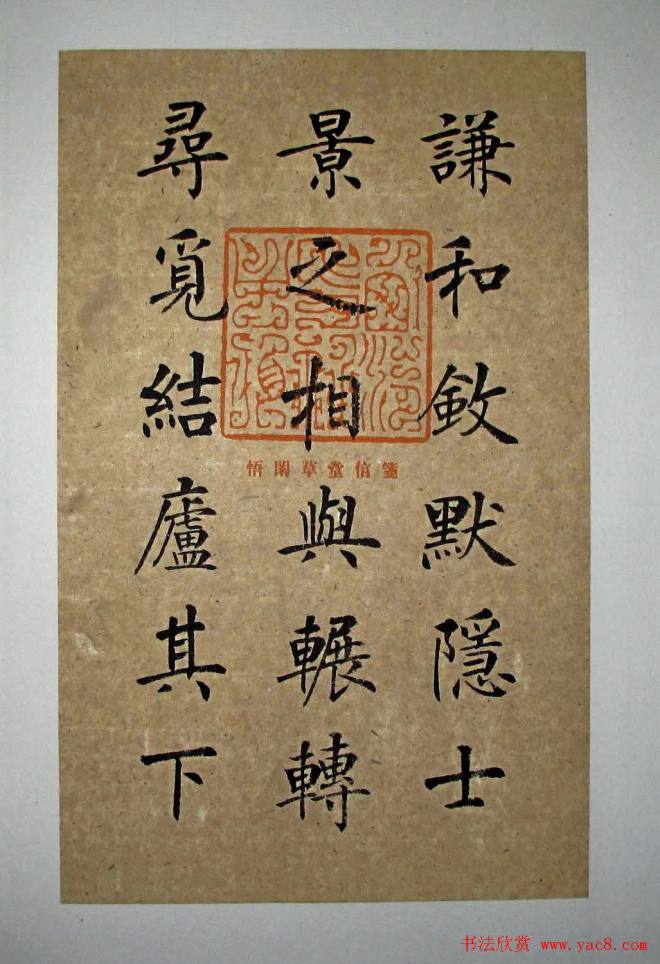 謙和敛默隱士
景之相與輾轉
尋覓結廬其下
箋信堂草閑悟
书法欣赏 www.yac8.com